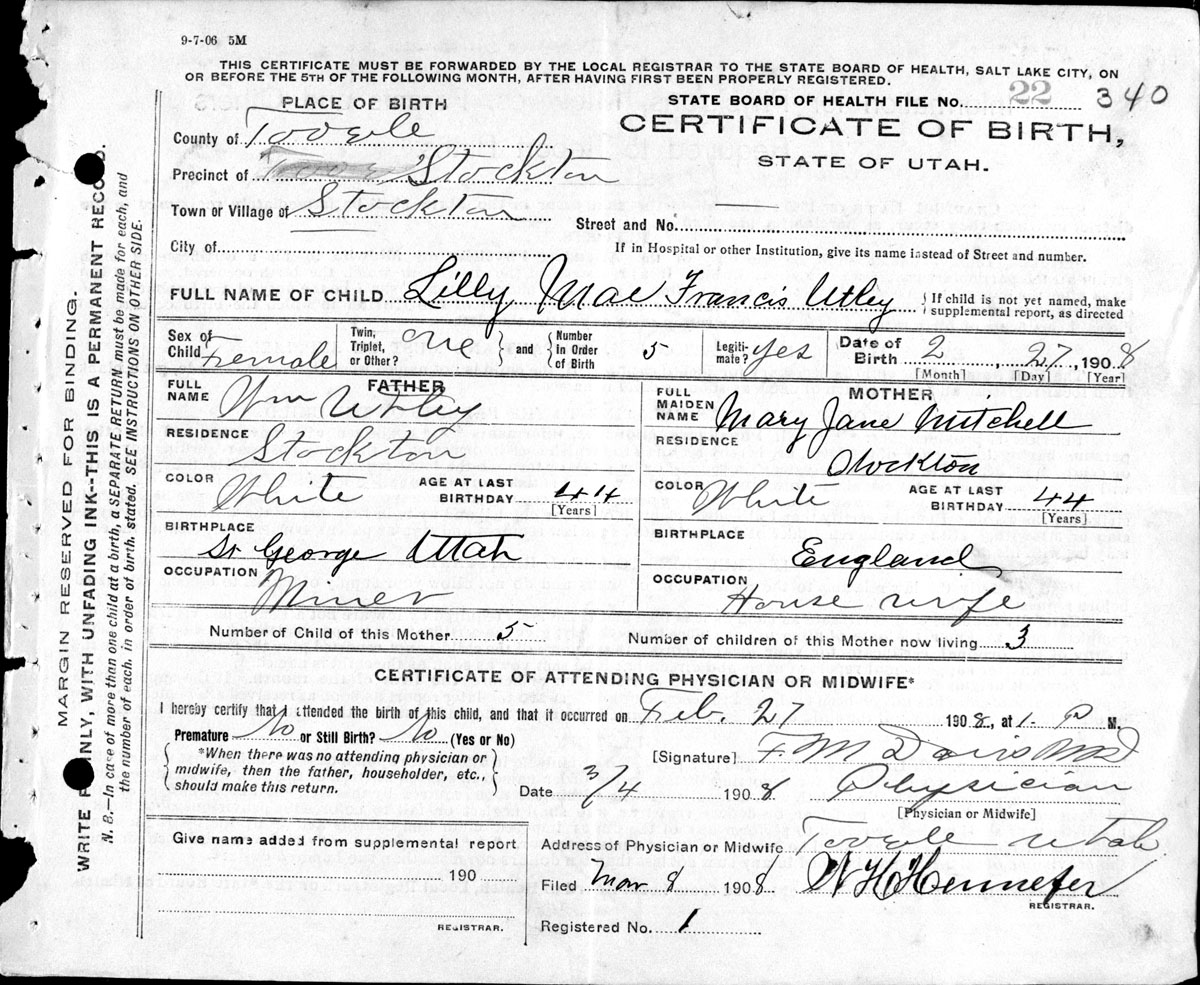 9-7-06 5M
THIS CERTIFICATE MUST BE FORWARDED BY THE LOCAL REGISTRAR TO THE STATE BOARD OF HEALTH, SALT LAKE CITY, ON
OR BEFORE THE 5TH OF THE FOLLOWING MONTH, AFTER HAVING FIRST BEEN PROPERLY REGISTERED.
PLACE OF BIRTH
STATE BOARD OF HEALTH FILE No. 22 340
County of Tooele
CERTIFICATE OF BIRTH,
STATE OF UTAH.
Precinct of Tooele Stockton
Town or Village of Stockton
Street and No.
City of
If in Hospital or other Institution, give its name instead of Street and number.
FULL NAME OF CHILD Lilly Mae Francis Utley { If child is not yet named, make
supplemental report, as directed
Sex of Child Female
Twin, Triplet, or Other? one } and { Number in Order of Birth 5
Legiti- mate? yes
Date of Birth 2 27, 1908
[Month] [Day] [Year]
FATHER
FULL NAME Wm Utley
RESIDENCE Stockton
COLOR White AGE AT LAST BIRTHDAY 44
[Years]
BIRTHPLACE St George Utah
OCCUPATION Miner
MOTHER
FULL MAIDEN NAME Mary Jane Mitchell
RESIDENCE Stockton
COLOR White AGE AT LAST BIRTHDAY 44
[Years]
BIRTHPLACE England
OCCUPATION House wife
Number of Child of this Mother 5 Number of children of this Mother now living 3
CERTIFICATE OF ATTENDING PHYSICIAN OR MIDWIFE*
I hereby certify that I attended the birth of this child, and that it occurred on Feb. 27 1908, at 1- P M.
Premature No or Still Birth? No (Yes or No)
{ *When there was no attending physician or
midwife, then the father, householder, etc.,
should make this return. }
[Signature] F. M Davis MD
Date 3/4 1908 Physician
[Physician or Midwife]
Give name added from supplemental report
190
REGISTRAR.
Address of Physician or Midwife Tooele Utah
Filed Mar 8 1908 W H Hennefer
REGISTRAR.
Registered No. 1
MARGIN RESERVED FOR BINDING.
WRITE PLAINLY, WITH UNFADING INK--THIS IS A PERMANENT RECORD.
N. B.—In case of more than one child at a birth, a SEPARATE RETURN must be made for each, and
the number of each, in order of birth, stated. SEE INSTRUCTIONS ON OTHER SIDE.